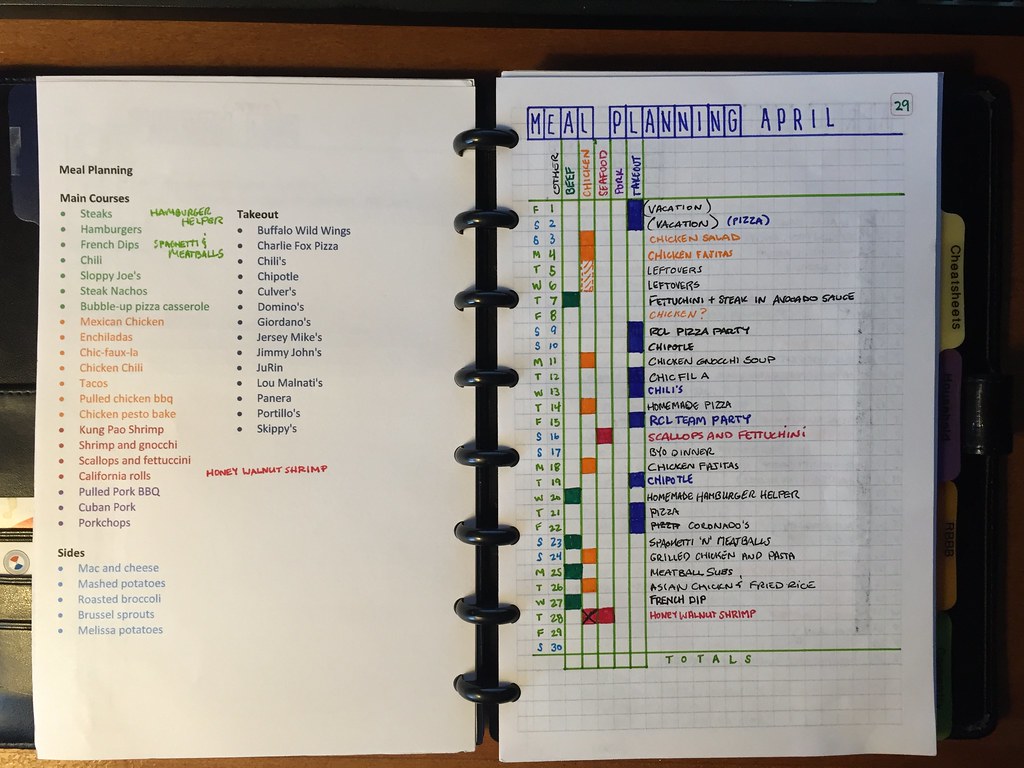 Meal Planning
Main Courses
Steaks
HAMBURGER
HELPER
Hamburgers
French Dips
SPAGHETTI &
MEATBALLS
Chili
Sloppy Joe's
Steak Nachos
Bubble-up pizza casserole
Mexican Chicken
Enchiladas
Chic-faux-la
Chicken Chili
Tacos
Pulled chicken bbq
Chicken pesto bake
Kung Pao Shrimp
Shrimp and gnocchi
Scallops and fettuccini
California rolls
HONEY WALNUT SHRIMP
Pulled Pork BBQ
Cuban Pork
Porkchops
Takeout
Buffalo Wild Wings
Charlie Fox Pizza
Chili's
Chipotle
Culver's
Domino's
Giordano's
Jersey Mike's
Jimmy John's
JuRin
Lou Malnati's
Panera
Portillo's
Skippy's
Sides
Mac and cheese
Mashed potatoes
Roasted broccoli
Brussel sprouts
Melissa potatoes
29
MEAL PLANNING APRIL
OTHER BEEF CHICKEN SEAFOOD PORK TAKEOUT
F 1 (VACATION)
S 2 (VACATION) (PIZZA)
S 3 CHICKEN SALAD
M 4 CHICKEN FAJITAS
T 5 LEFTOVERS
W 6 LEFTOVERS
T 7 FETTUCHINI + STEAK IN AVOCADO SAUCE
F 8 CHICKEN?
S 9 RCL PIZZA PARTY
S 10 CHIPOTLE
M 11 CHICKEN GNOCCHI SOUP
T 12 CHIC FIL A
W 13 CHILI'S
T 14 HOMEMADE PIZZA
F 15 RCL TEAM PARTY
S 16 SCALLOPS AND FETTUCHINI
S 17 BYO DINNER
M 18 CHICKEN FAJITAS
T 19 CHIPOTLE
W 20 HOMEMADE HAMBURGER HELPER
T 21 PIZZA
F 22 PIZZA CORONADO'S
S 23 SPAGHETTI 'N' MEATBALLS
S 24 GRILLED CHICKEN AND PASTA
M 25 MEATBALL SUBS
T 26 ASIAN CHICKEN & FRIED RICE
W 27 FRENCH DIP
T 28 HONEY WALNUT SHRIMP
F 29
S 30
TOTALS
Cheatsheets